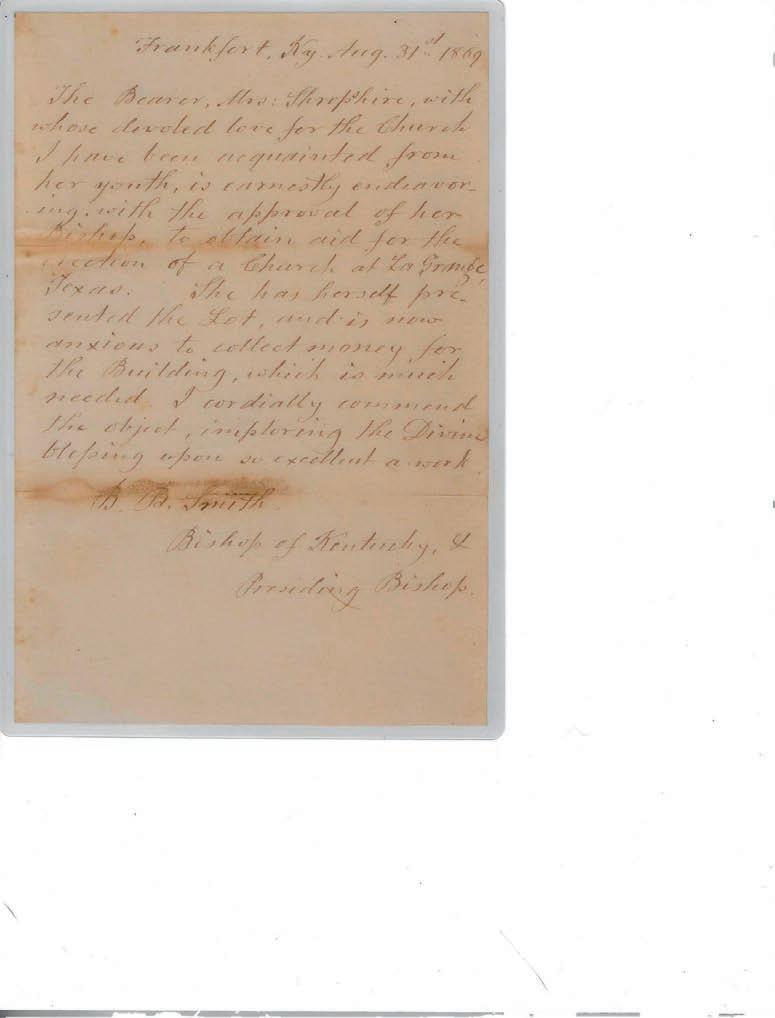 Frankfort, Ky. Aug. 31st 1869
The Bearer, Mrs: Shropshire, with
whose devoted love for the Church
I have been acquainted from
her youth, is earnestly endeavor-
ing, with the approval of her
Bishop, to obtain aid for the
erection of a Church at La Grange,
Texas. She has herself pre-
sented the Lot, and is now
anxious to collect money for
the Building, which is much
needed. I cordially commend
the object, imploring the Divine
blessing upon so excellent a work.
B. B. Smith.
Bishop of Kentucky, &
Presiding Bishop.